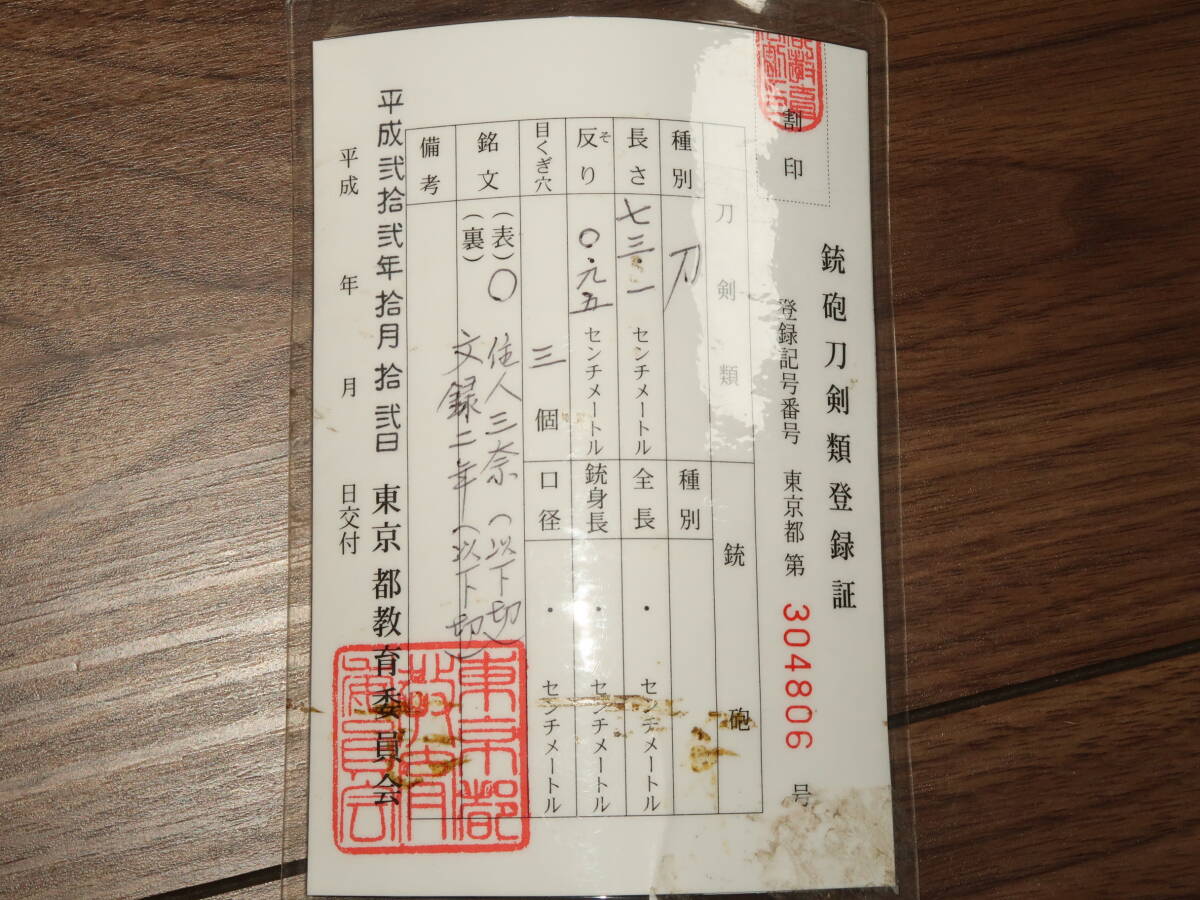 銃砲刀剣類登録証
割印
登録記号番号 東京都 第 304806 号
刀剣類
銃砲
種別 刀
種別
長さ 七三・一 センチメートル
全長 ・ センチメートル
反り そ 〇・九五 センチメートル
銃身長 ・ センチメートル
目くぎ穴 三 個
口径 ・ センチメートル
銘文 (表) 〇 住人三奈 (以下切)
(裏) 文録二年 (以下切)
備考
平成弐拾弐年拾月拾弐日 東京都教育委員会
東京都教育委員会
平成 年 月 日交付